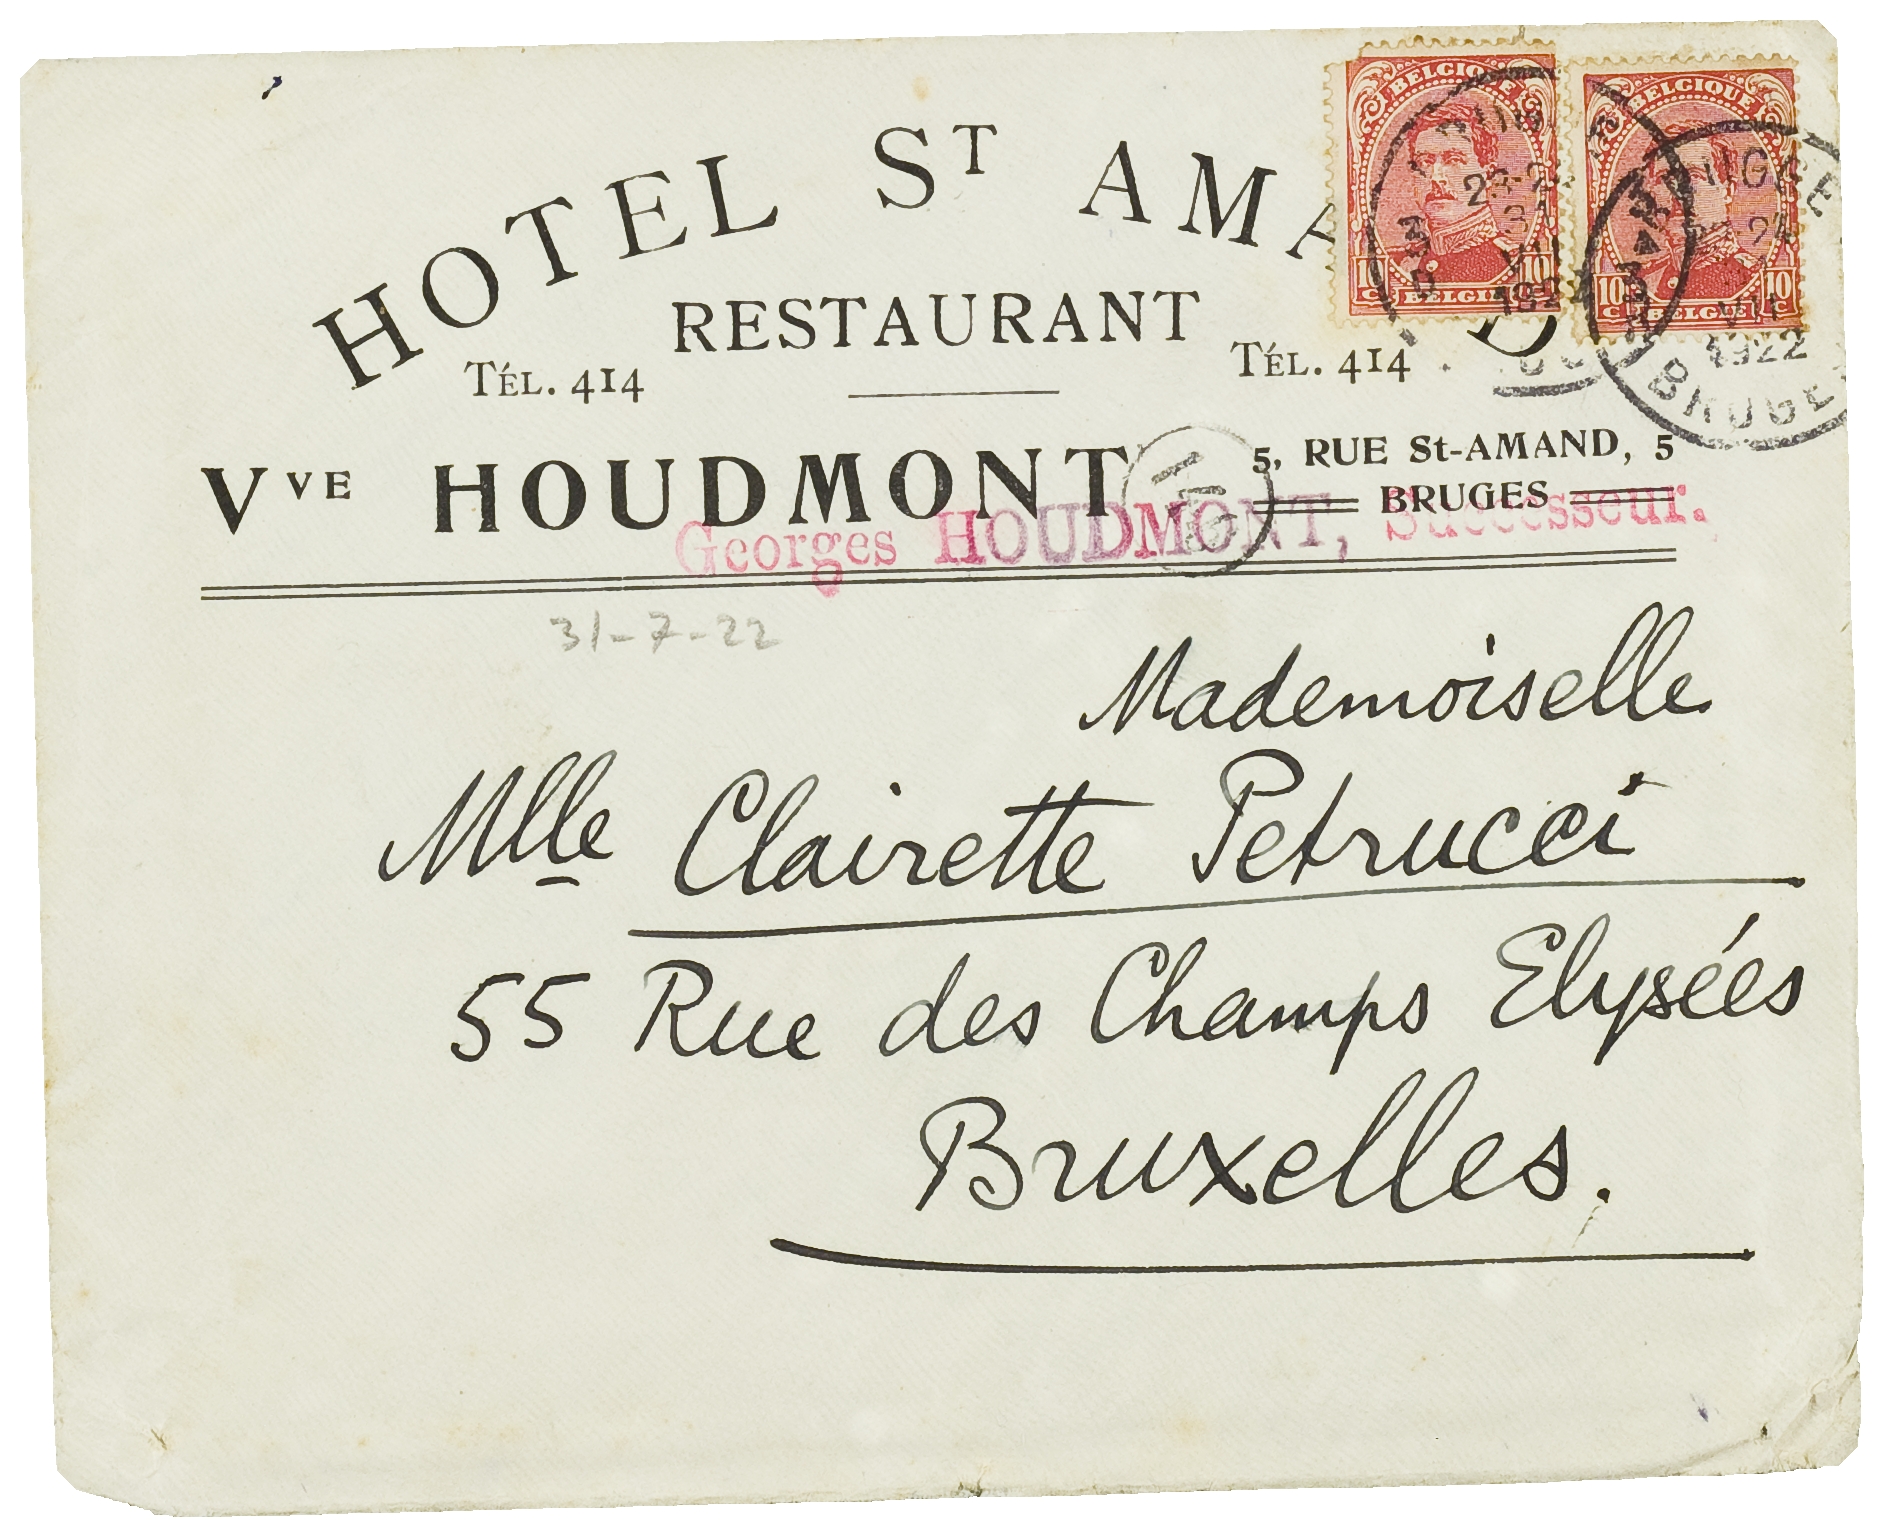 HOTEL ST AMA D
RESTAURANT
TÉL. 414
TÉL. 414
VVE HOUDMONT
5, RUE St-AMAND, 5
BRUGES
Georges HOUDMONT, Successeur.
31-7-22
Mademoiselle
Mlle Clairette Petrucci
55 Rue des Champs Elysées
Bruxelles.
BELGIQUE
10 10
C BELGIE
BELGIQUE
10 10
C BELGIE C
BRUGGE
VII
1922
BRUGES